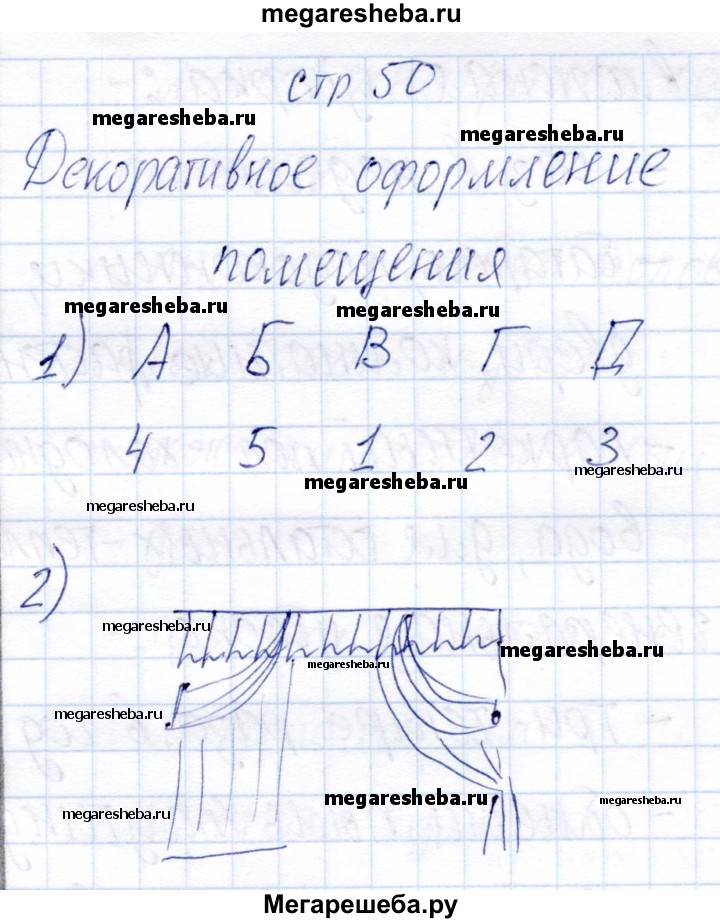 megaresheba.ru
стр 50
megaresheba.ru
megaresheba.ru
Декоративное оформление
помещения
megaresheba.ru
megaresheba.ru
1) А Б В Г Д
4 5 1 2 3
megaresheba.ru
megaresheba.ru
megaresheba.ru
2)
megaresheba.ru
megaresheba.ru
megaresheba.ru
megaresheba.ru
megaresheba.ru
megaresheba.ru
megaresheba.ru
Мегарешеба.ру